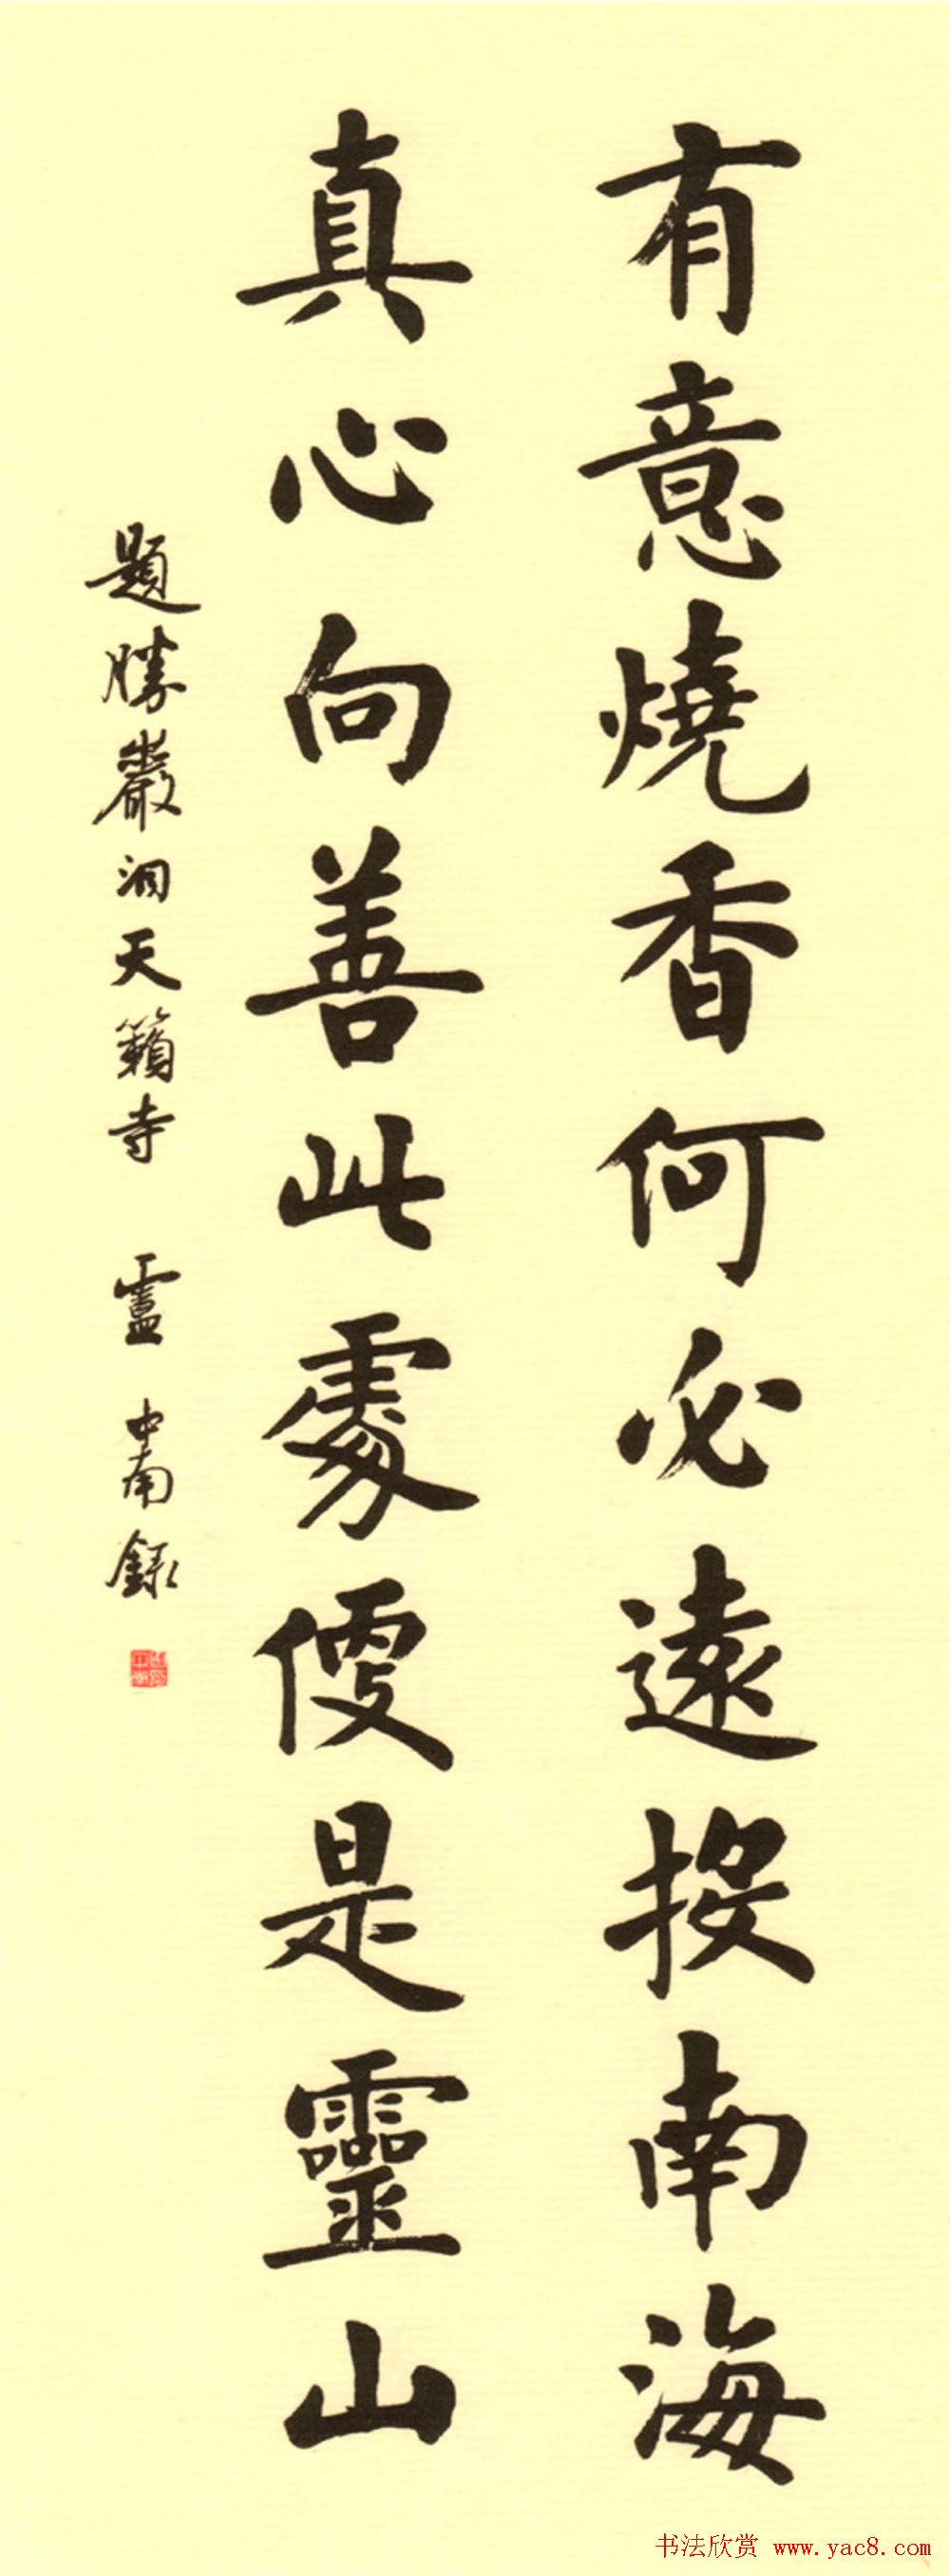 有意燒香何必遠投南海
真心向善此處便是靈山
題勝巖洞天籟寺 盧中南錄
书法欣赏 www.yac8.com